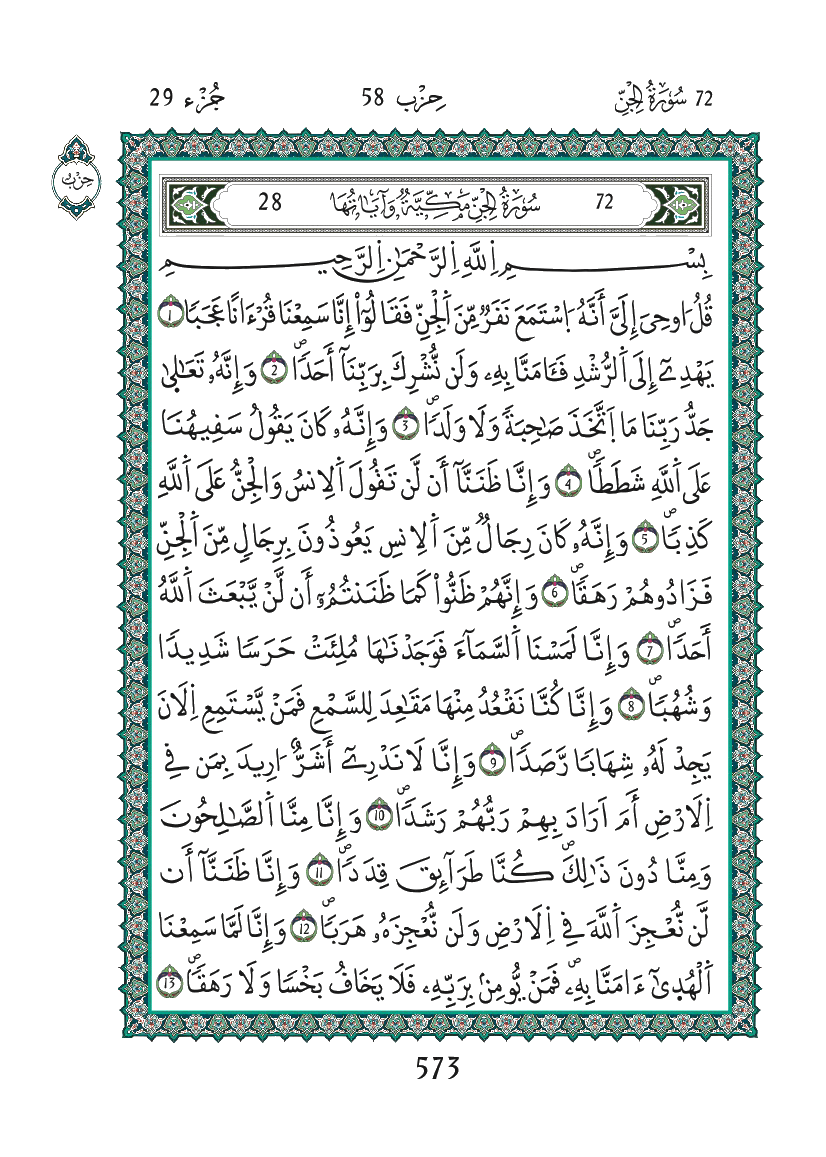 72 سُورَةُ الجِنِّ حِزْب 58 جُزْء 29
حِزْب
72 سُورَةُ الجِنِّ مَكِّيَّةٌ وَآيَاتُهَا 28
بِسْمِ اِ۬للَّهِ اِ۬لرَّحْمَٰنِ اِ۬لرَّحِيمِ
قُلُ ا۟وحِيَ إِلَيَّ أَنَّهُ اُ۪سْتَمَعَ نَفَرٞ مِّنَ اَ۬لْجِنِّ فَقَالُوٓاْ إِنَّا سَمِعْنَا قُرْءَاناً عَجَباٗ 1
يَهْدِےٓ إِلَى اَ۬لرُّشْدِ فَـَٔامَنَّا بِهِۦ وَلَن نُّشْرِكَ بِرَبِّنَآ أَحَداٗۖ 2 وَإِنَّهُۥ تَعَٰلَىٰ
جَدُّ رَبِّنَا مَا اَ۪تَّخَذَ صَٰحِبَةٗ وَلَا وَلَداٗۖ 3 وَإِنَّهُۥ كَانَ يَقُولُ سَفِيهُنَا
عَلَى اَ۬للَّهِ شَطَطاٗۖ 4 وَإِنَّا ظَنَنَّآ أَن لَّن تَقُولَ اَ۬لِانسُ وَالْجِنُّ عَلَى اَ۬للَّهِ
كَذِباٗۖ 5 وَإِنَّهُۥ كَانَ رِجَالٞ مِّنَ اَ۬لِانسِ يَعُوذُونَ بِرِجَالٖ مِّنَ اَ۬لْجِنِّ
فَزَادُوهُمْ رَهَقاٗۖ 6 وَإِنَّهُمْ ظَنُّواْ كَمَا ظَنَنتُمُۥٓ أَن لَّنْ يَّبْعَثَ اَ۬للَّهُ
أَحَداٗۖ 7 وَإِنَّا لَمَسْنَا اَ۬لسَّمَآءَ فَوَجَدْنَٰهَا مُلِئَتْ حَرَساٗ شَدِيداٗ
وَشُهُباٗۖ 8 وَإِنَّا كُنَّا نَقْعُدُ مِنْهَا مَقَٰعِدَ لِلسَّمْعِ فَمَنْ يَّسْتَمِعِ اِ۬لَانَ
يَجِدْ لَهُۥ شِهَاباٗ رَّصَداٗۖ 9 وَإِنَّا لَا نَدْرِےٓ أَشَرٌّ ا۟رِيدَ بِمَن فِي
اِ۬لَارْضِ أَمَ اَرَادَ بِهِمْ رَبُّهُمْ رَشَداٗۖ 10 وَإِنَّا مِنَّا اَ۬لصَّٰلِحُونَ
وَمِنَّا دُونَ ذَٰلِكَۖ كُنَّا طَرَآئِقَ قِدَداٗۖ 11 وَإِنَّا ظَنَنَّآ أَن
لَّن نُّعْجِزَ اَ۬للَّهَ فِي اِ۬لَارْضِ وَلَن نُّعْجِزَهُۥ هَرَباٗۖ 12 وَإِنَّا لَمَّا سَمِعْنَا
اَ۬لْهُدَىٰٓ ءَامَنَّا بِهِۦۖ فَمَنْ يُّومِنۢ بِرَبِّهِۦ فَلَا يَخَافُ بَخْساٗ وَلَا رَهَقاٗۖ 13
573